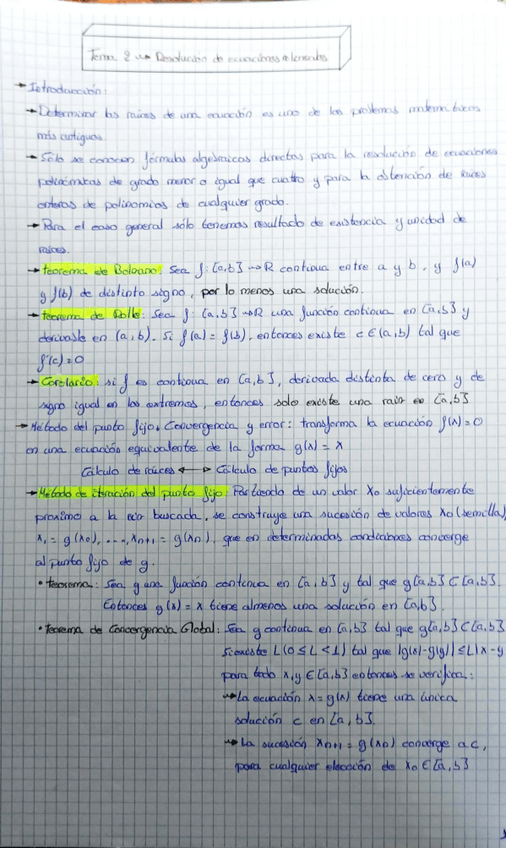 Tema 2 → Resolución de ecuaciones no lineales
→ Introducción:
→ Determinar las raíces de una ecuación es uno de los problemas matemáticos
más antiguos.
→ Sólo se conocen fórmulas algebraicas directas para la resolución de ecuaciones
polinómicas de grado menor o igual que cuatro y para la obtención de raíces
enteras de polinomios de cualquier grado.
→ Para el caso general sólo tenemos resultado de existencia y unidad de
raíces.
→ teorema de Bolzano: Sea f: [a,b] → R continua entre a y b, y f(a)
y f(b) de distinto signo, por lo menos una solución.
→ teorema de Rolle: Sea f: [a,b] → R una función continua en [a,b] y
derivable en (a,b). Si f(a) = f(b), entonces existe c ∈ (a,b) tal que
f'(c) = 0
→ Corolario: si f es continua en [a,b], derivada distinta de cero y de
signo igual en los extremos, entonces solo existe una raíz en [a,b]
→ Método del punto fijo. Convergencia y error: transforma la ecuación f(x) = 0
en una ecuación equivalente de la forma g(x) = x
Cálculo de raíces ↔ Cálculo de puntos fijos
→ Método de iteración del punto fijo: Partiendo de un valor x0 suficientemente
proximo a la buscada, se construye una sucesión de valores x0 (semilla)
x1 = g(x0), ..., xn+1 = g(xn), que en determinadas condiciones converge
al punto fijo de g.
• teorema: Sea g una función continua en [a,b] y tal que g[a,b] ⊂ [a,b].
Entonces g(x) = x tiene almenos una solución en [a,b].
• Teorema de Convergencia Global: Sea g continua en [a,b] tal que g[a,b] ⊂ [a,b]
Si existe L (0 ≤ L < 1) tal que |g(x)-g(y)| ≤ L|x-y
para todo x,y ∈ [a,b] entonces se verifica:
→ La ecuación x = g(x) tiene una única
solución c en [a,b].
→ La sucesión xn+1 = g(xn) converge a c,
para cualquier elección de x0 ∈ [a,b]